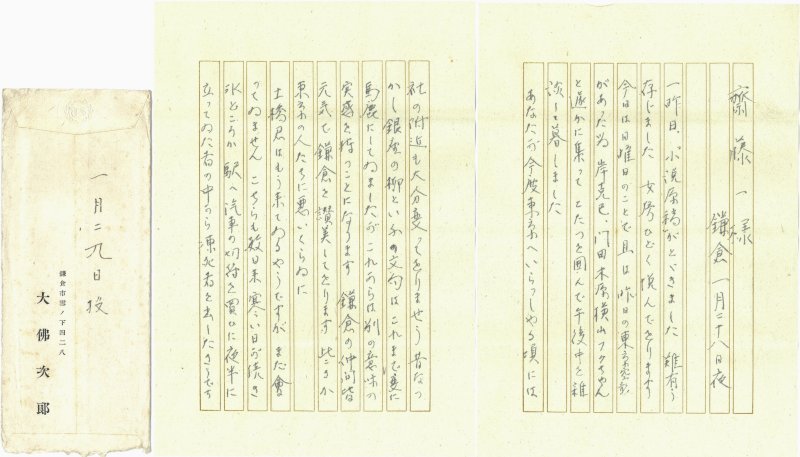 齋藤一様
鎌倉 一月二十八日夜
一昨日、小説原稿がとゞきました 難有う
存じました 女房ひどく悦んでをります
今日は日曜日のことで且は昨日の東京
があつた為 岸克己、門田 木原 横山フクちやん
と遽かに集つて こたつを圍んで午後中を雜
談して暮しました
あなたが今度東京へいらつしやる頃には
社の附近も大分変つてをりませう 昔なつ
かし銀座の柳といふの文句はこれまで
馬鹿にしてゐましたが これからは別の意味の
実感を持つことになります 鎌倉の仲間皆
元気で鎌倉を讃美してをります 比こか
東京の人たちに悪いくらゐに
土橋君はもう来てゐるやうですがまだ會
つてゐません こちらも数日来寒い日が続き
氷どころか 駅へ汽車の切符を買ひに夜半に
立つてゐた者の中から凍死者を出したさうです
一月二九日 投
鎌倉市雪ノ下四二八
大佛次郎